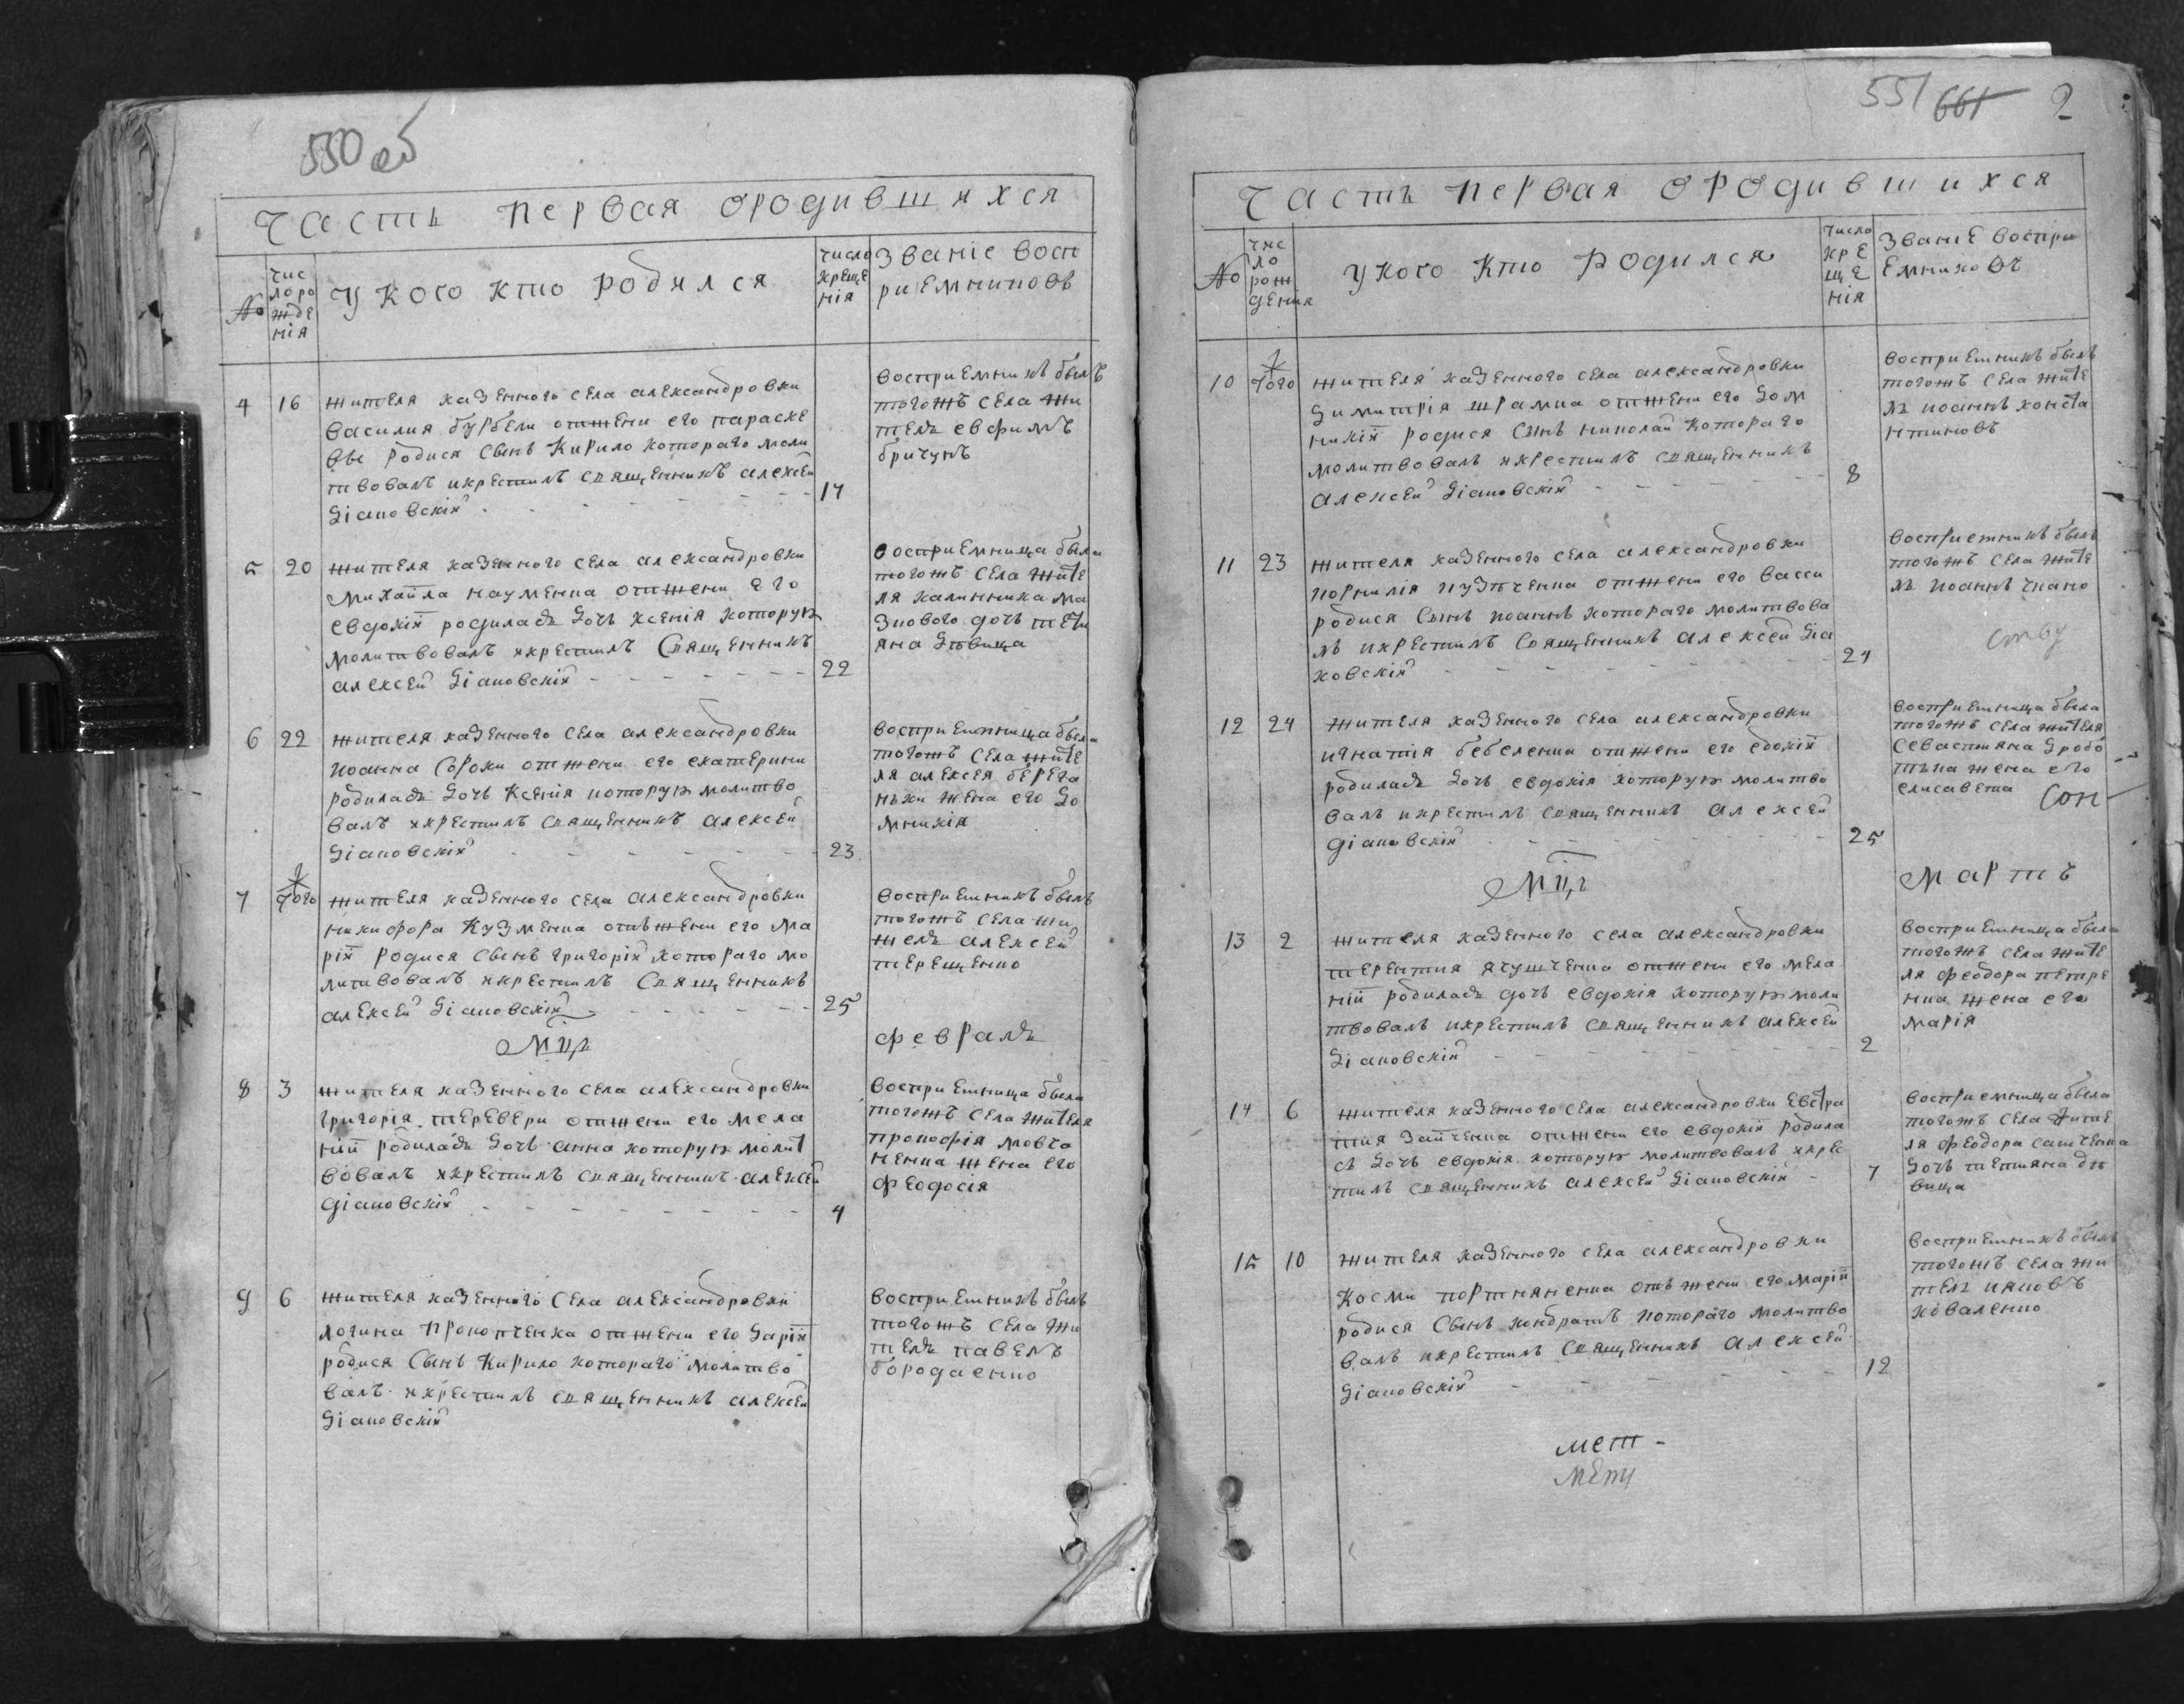 550 об
Часть первая ородившихся
№
чис
лоро
жде
нія
У кого кто родился
число
креще
нія
Званіе восп
риемниковъ
4 16 жителя казенного села александровки
василия бурбели отжени его параске
вы родися сынъ Кирило котораго моли
твовалъ икрестилъ священникъ алексей
Діаковскій 17
восприемникъ былъ
тогожъ села жи
тель евфимъ
бричунъ
5 20 жителя казенного села александровки
михаила науменка отжени его
евдокіи родиласъ дочь ксенія которую
молитвовалъ икрестилъ Священникъ
алексей Діаковскій 22
восприемница была
тогожъ села жите
ля калинника ма
знового дочь тети
яна дѣвица
6 22 жителя казенного села александровки
иоанна Сороки отжени его екатерини
родиласъ дочь Ксенія которую молитво
валъ икрестилъ священникъ алексей
Діаковскій 23
восприемница была
тогожъ села жите
ля алексея берега
нъки жена его До
мникія
7 Того жителя казенного села александровки
никифора Кузменка отъжени его ма
ріи родися сынъ григорій котораго мо
литвовалъ икрестилъ Священникъ
алексей Діаковскій 25
восприемникъ былъ
тогожъ села жи
жель алексей
терещенко
Мцъ
февраль
8 3 жителя казенного села александровки
григорія теревери отжени его мела
ніи родиласъ дочь анна которую молит
вовалъ икрестилъ священникъ алексей
діаковскій 4
восприемница была
тогожъ села жителя
прокофія мовча
ненка жена его
феодосія
9 6 жителя казенного села александровки
логина Прокопченка отжени его даріи
родися сынъ Кирило котораго молитво
валъ икрестилъ священникъ алексей
Діаковскій
восприемникъ былъ
тогожъ села жи
тель павелъ
бородаенко
551 661 2
Часть первая ородившихся
№
чис
ло
рож
дения
У кого кто родился
число
кре
ще
нія
Звание воспри
емниковъ
10 Того жителя казенного села александровки
Димитрія шрамка отжени его Дом
никіи родися сынъ николай котораго
молитвовалъ икрестилъ священникъ
алексей Діаковскій 8
восприемникъ былъ
тогожъ села жите
ль иоаннъ конста
нтиновъ
11 23 жителя казенного села александровки
корнилія пузѣченка отжени его васси
родися сынъ иоаннъ котораго молитвова
лъ икрестилъ священникъ алексей Діа
ковскій 24
восприемникъ былъ
тогожъ села жите
ль иоаннъ
12 24 жителя казенного села александровки
игнатія бебеленка отжени его едокіи
родиласъ дочь евдокія которую молитво
валъ икрестилъ священникъ алексей
діаковскій 25
восприемница была
тогожъ села жителя
севастияна дробо
тъка жена его
елисавета
Мцъ
мартъ
13 2 жителя казенного села александровки
терентия ячушченка отжени его мела
ніи родиласъ дочь евдокія которую моли
твовалъ икрестилъ священникъ алексей
Діаковскій 2
восприемница была
тогожъ села жите
ля феодора петре
нка жена его
марія
14 6 жителя казенного села александровки евстра
тия Зайченка отжени его евдокіи родила
съ дочь евдокія которую молитвовалъ икрес
тилъ священникъ алексей Діаковскій 7
восприемница была
тогожъ села жите
ля феодора савченка
дочь тетияна дѣ
вица
15 10 жителя казенного села александровки
Косми портняненка отъжени его маріи
родися Сынъ кондратъ котораго молитво
валъ икрестилъ Священникъ алексей
Діаковскій 12
восприемникъ былъ
тогожъ села жи
тель ияковъ
коваленко
мет-